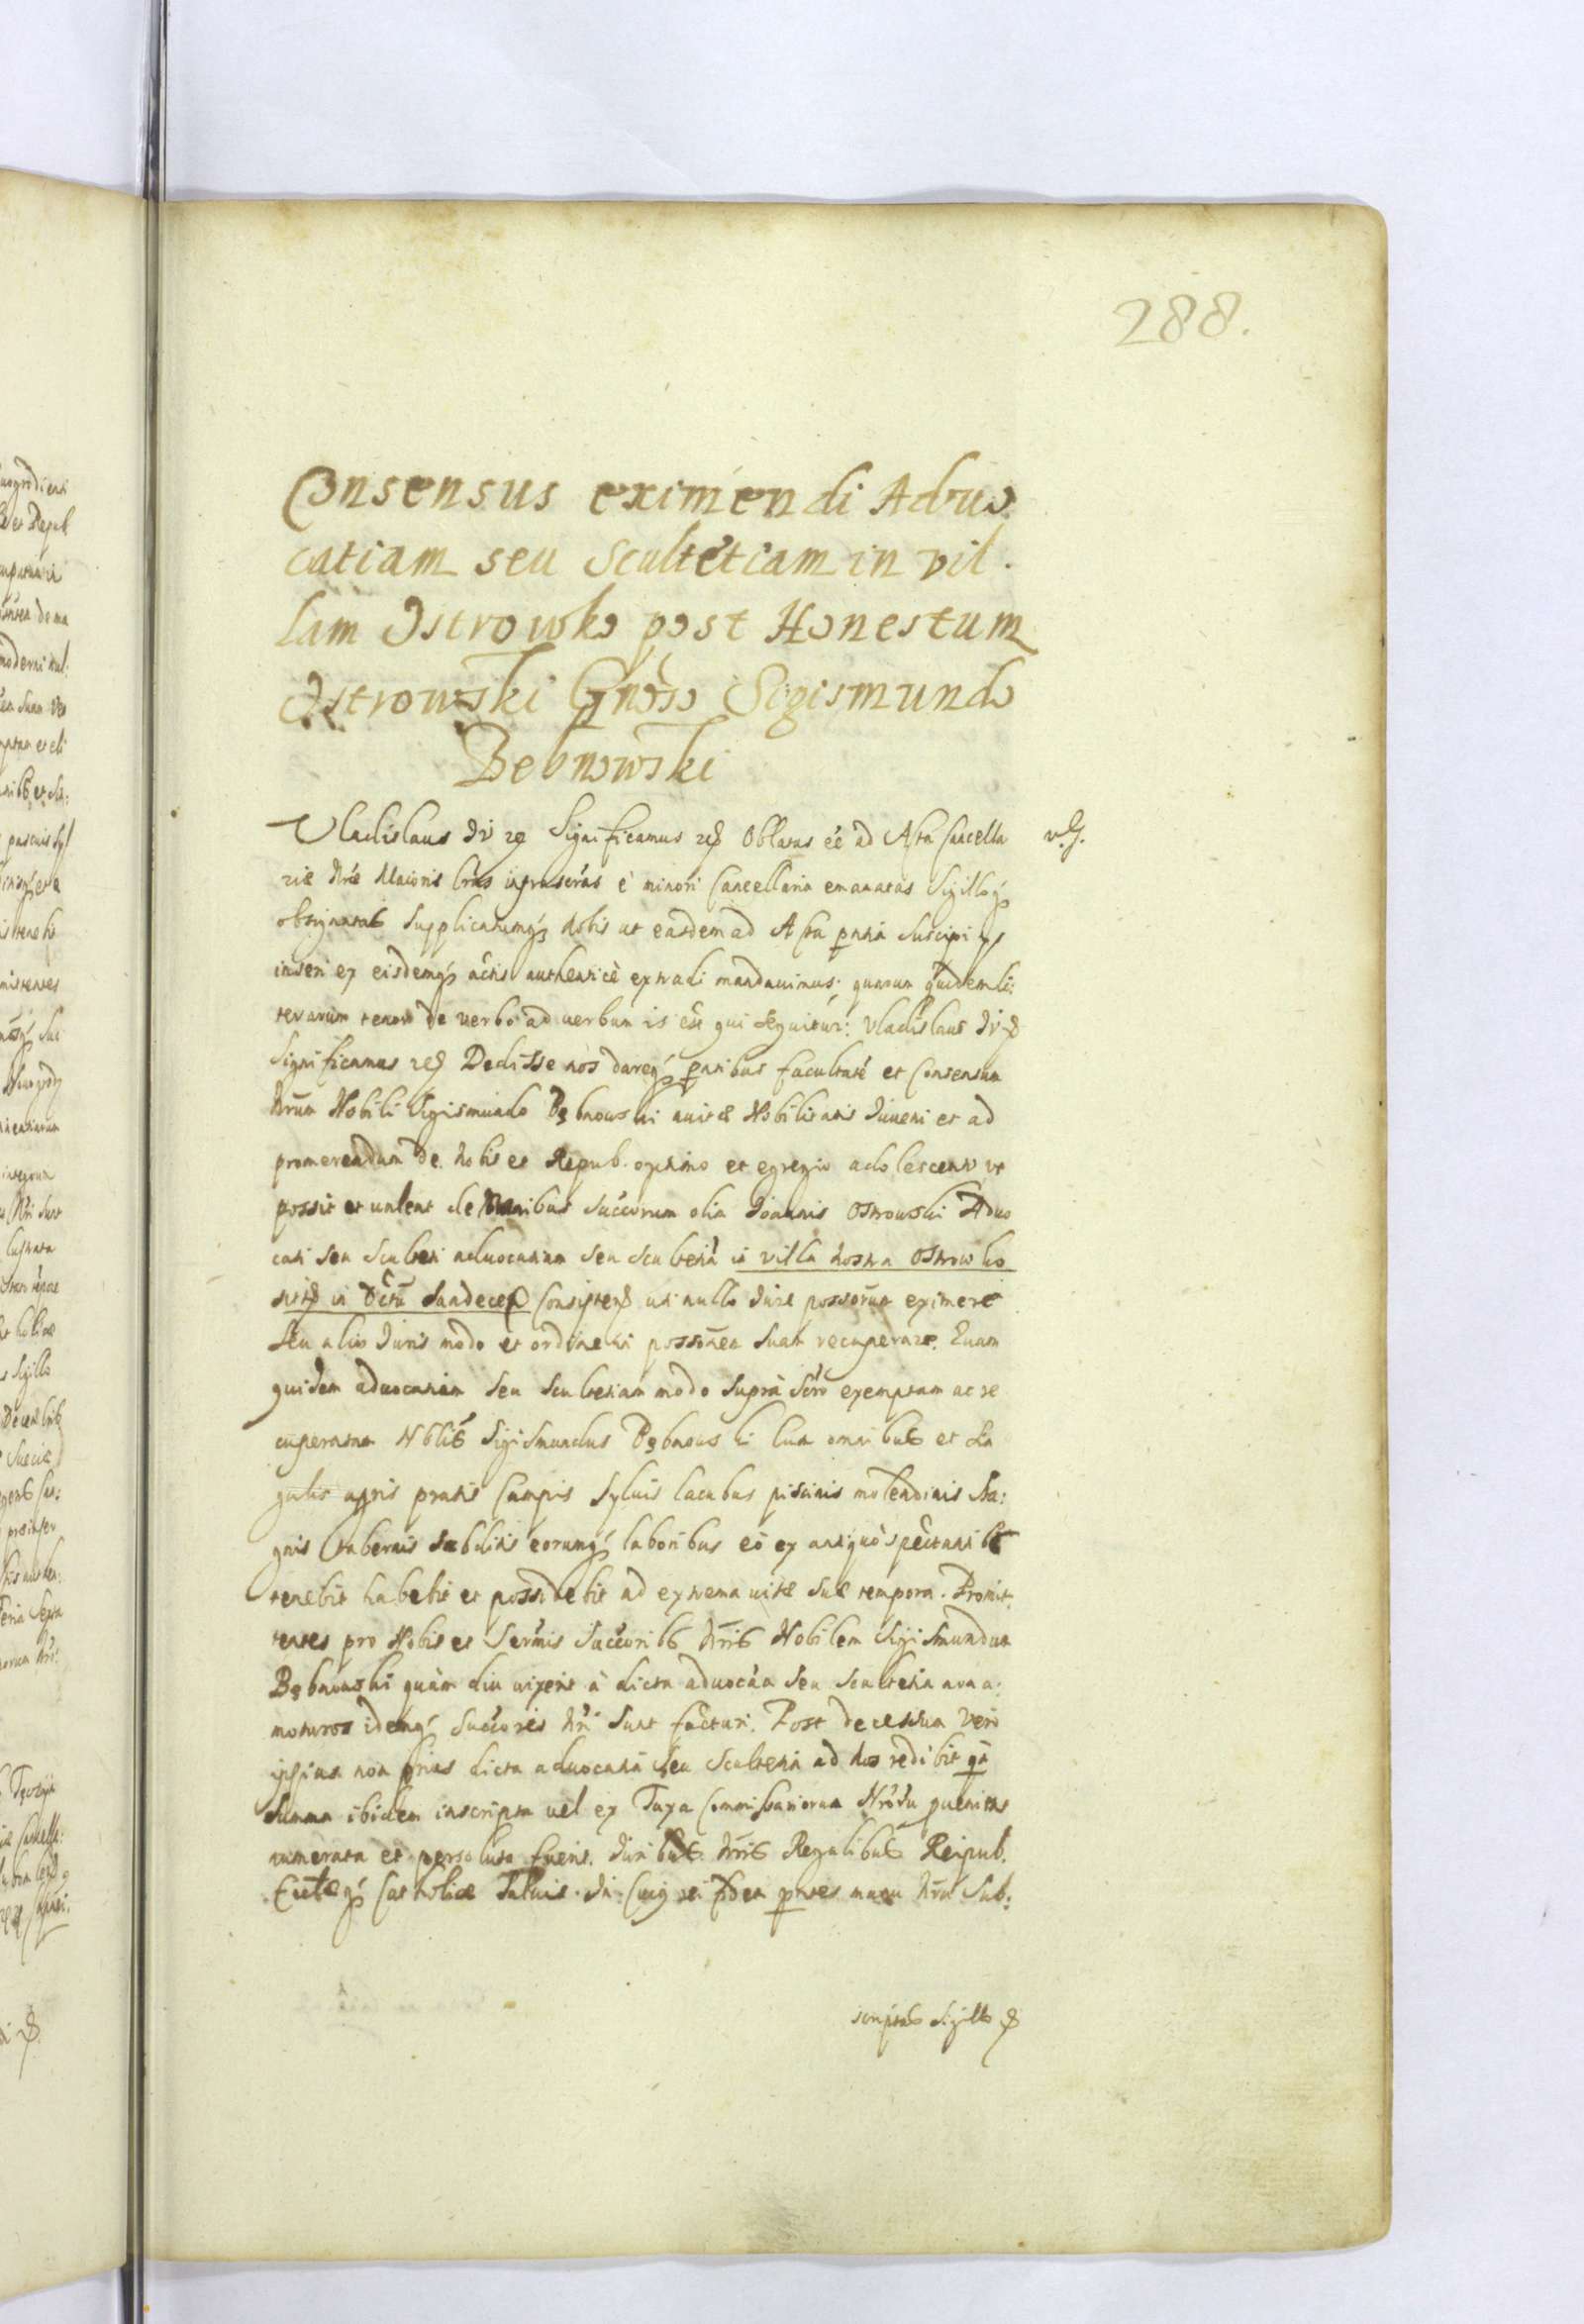 288.
Consensus eximendi Advo
catiam seu Scultetiam in vil
lam Ostrowko post Honestum
Ostrowski Gnoso Sigismundo
Bebnowski
Vladislaus IV etc Significamus etc Oblatas ee ad Acta Cancella
v. G.
riae Nrae Maioris lras infrascras è minori Cancellaria emanatas Sigilloq
obsignatas supplicatumq nobis ut easdem ad Acta pntia suscipi
inseri ex eisdemq actis authenticè extradi mandavimus: quarum quidem li:
terarum tenor de verbo ad verbum is est qui sequitur: Vladislaus IV etc
Significamus etc Dedisse nos dareq pntibus facultate et Consensum
Nrum Nobili Sigismundo Bębnowski avitae Nobilitatis Iuveni et ad
promerendum de nobis et Repub. optimo et egregio adolescenti ut
possit et valeat de manibus Succorum olim Ioannis Ostrowski Advo
cati seu Sculteti advocatiam seu Scultetia in villa nostra Ostrowko
sitis in Dctu Sandecen Consisten uti nullo Iure possorum eximere
seu alio Iuris modo et ordine in possonem suam recuperare. Quam
quidem advocatiam seu Scultetiam modo supra scro exemptam ac re
cuperatam Nblis Sigismundus Bębnowski cum omnibus et sin
gulis agris pratis Campis Sylvis lacubus piscinis molendinis sta:
gnis tabernis subditis eorumq laboribus eo ex antiquo spectantib
tenebit habebit et possidebit ad extrema vitae suae tempora. Promit
tentes pro Nobis et Sermis Succorib Nris Nobilem Sigismundum
Bębnowski quàm diu vixerit à dicta advocaa seu scultetia non a:
moturos idemq Succores Nri sunt facturi. Post decessum vero
ipsius non prius dicta advocatia seu Scultetia ad nos redibit qm
summa ibidem inscripta vel ex Taxa Commissariorum Nrodu
numerata et persoluta fuerit. Iuribus Nris Regalibus Reipub.
Ecclaeq Catholicae Salvis. In Cuig rei fidem pntes manu Nra Sub:
scriptas Sigillo etc